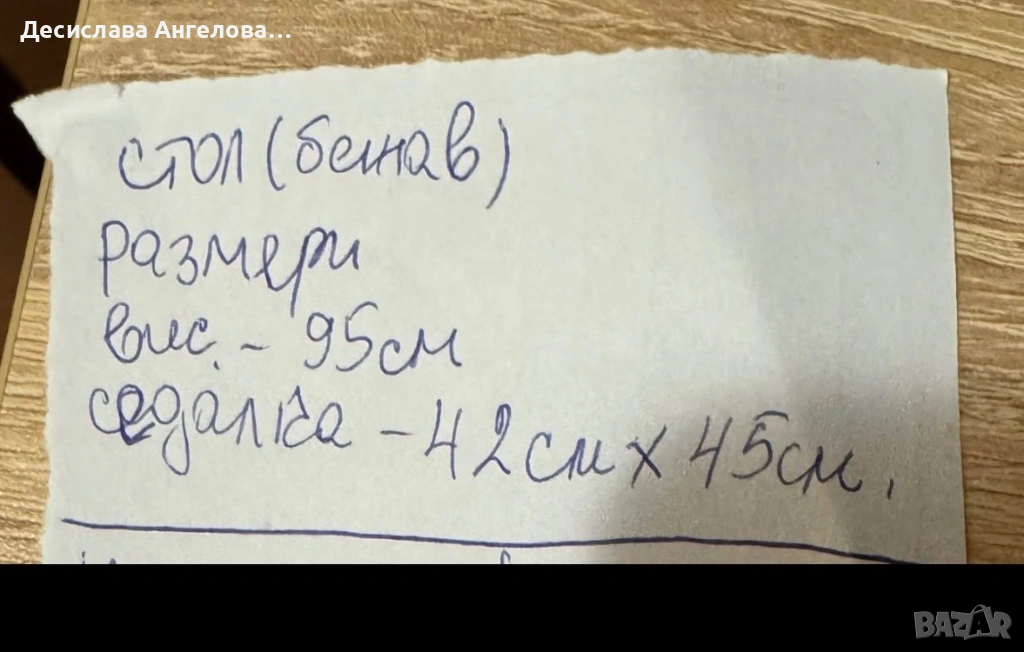 Десислава Ангелова...
стол (бежав)
размери
вис. - 95см
седалка - 42см х 45см.
BAZAR